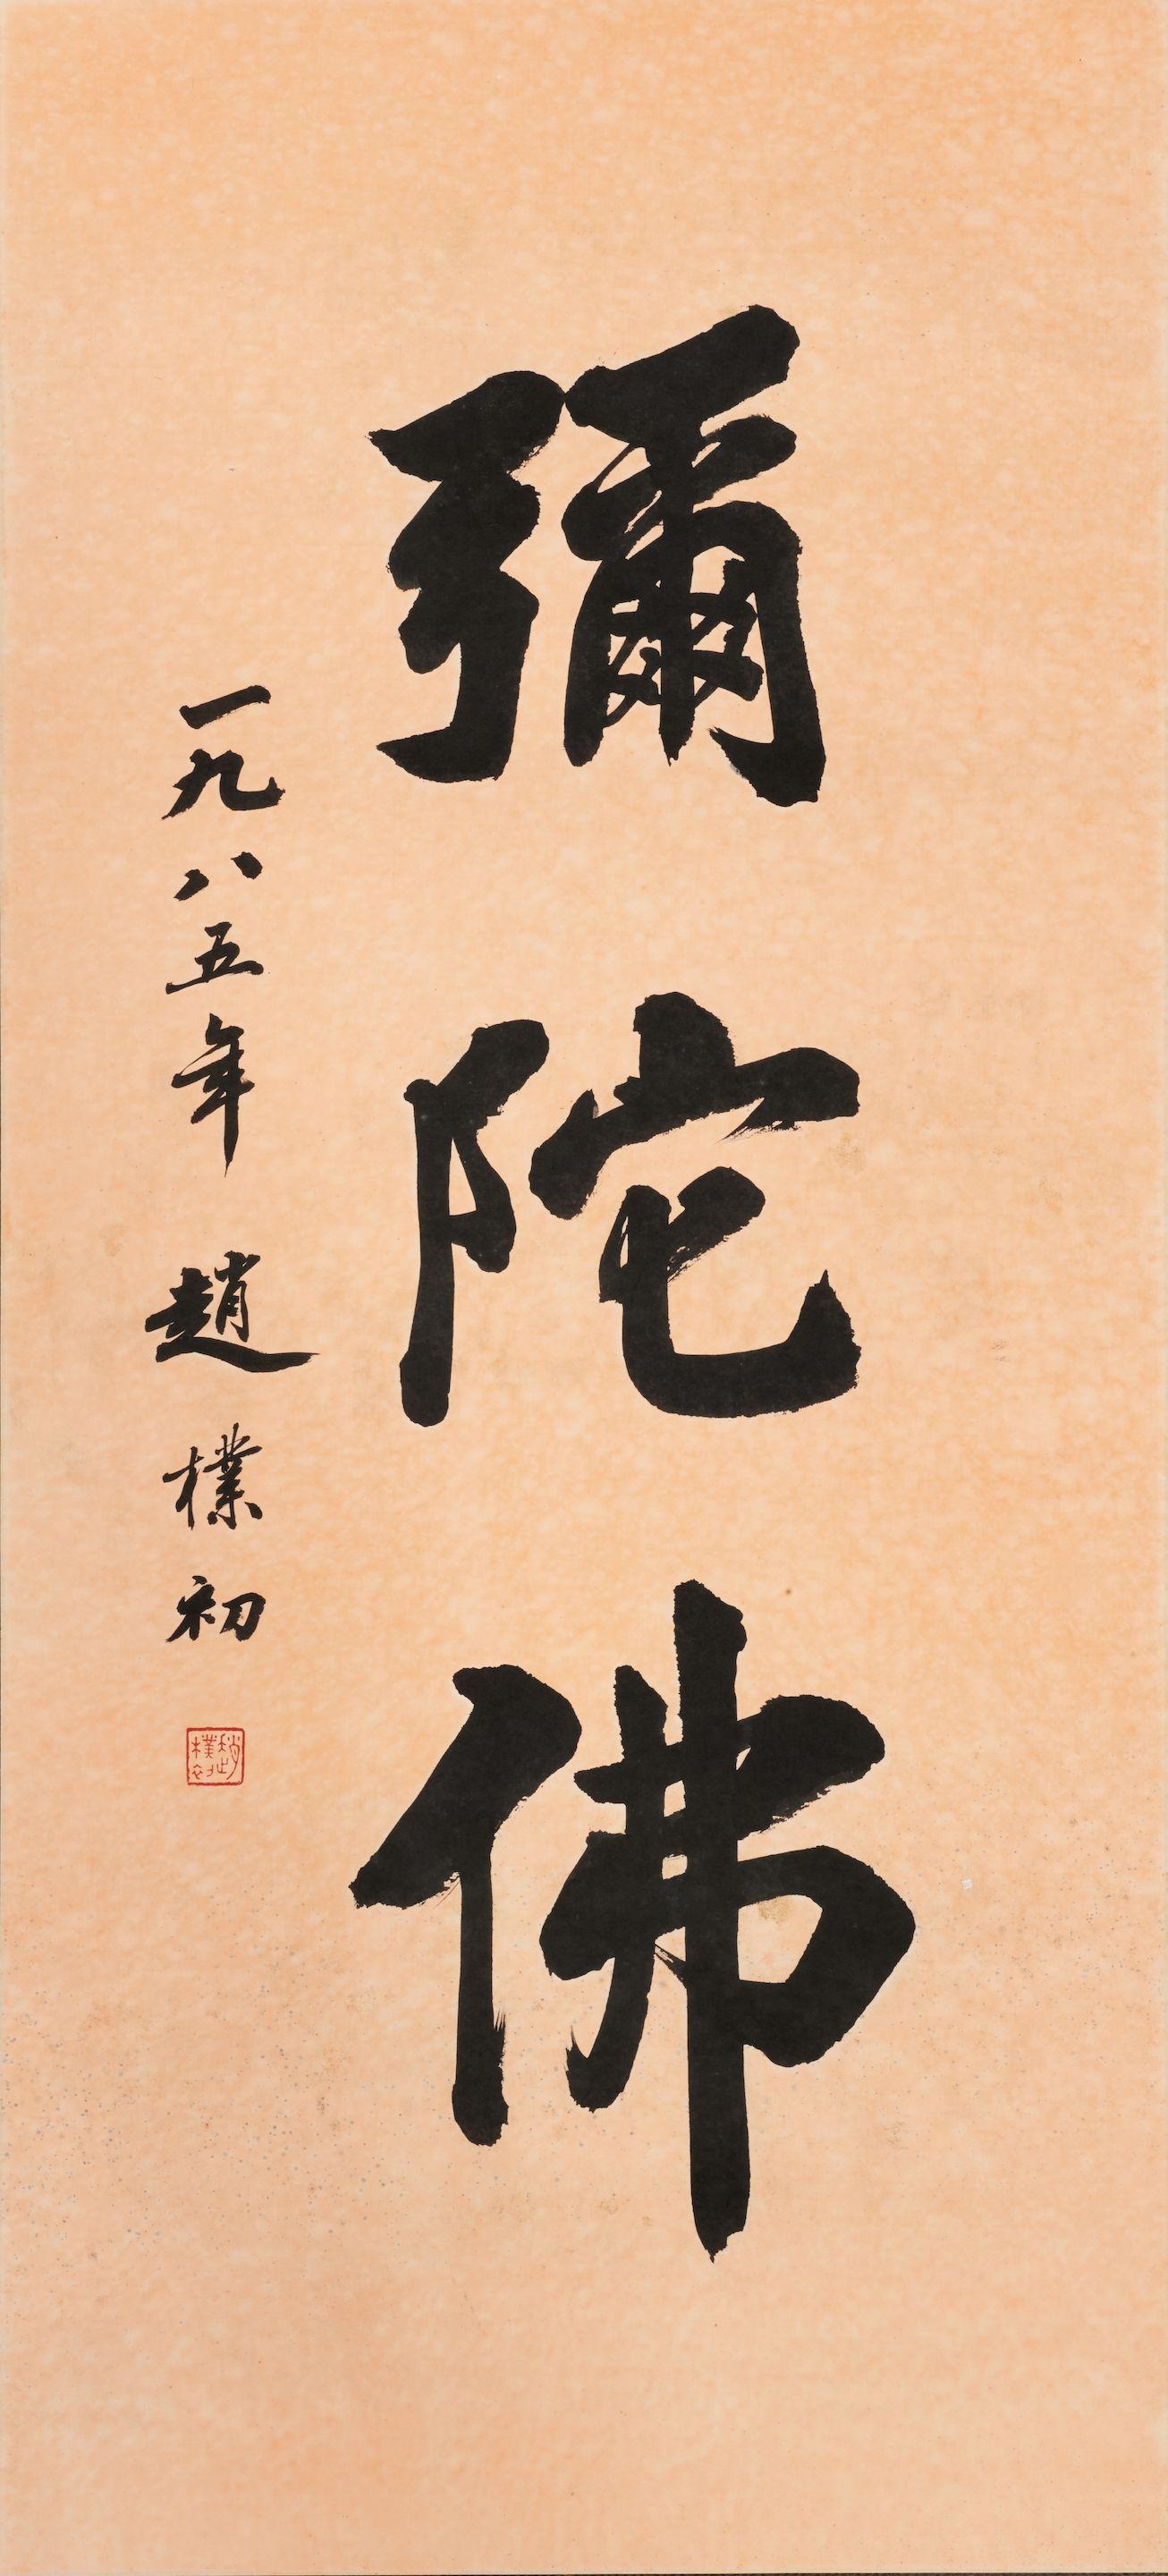 彌陀佛
一九八五年 趙樸初
趙樸初